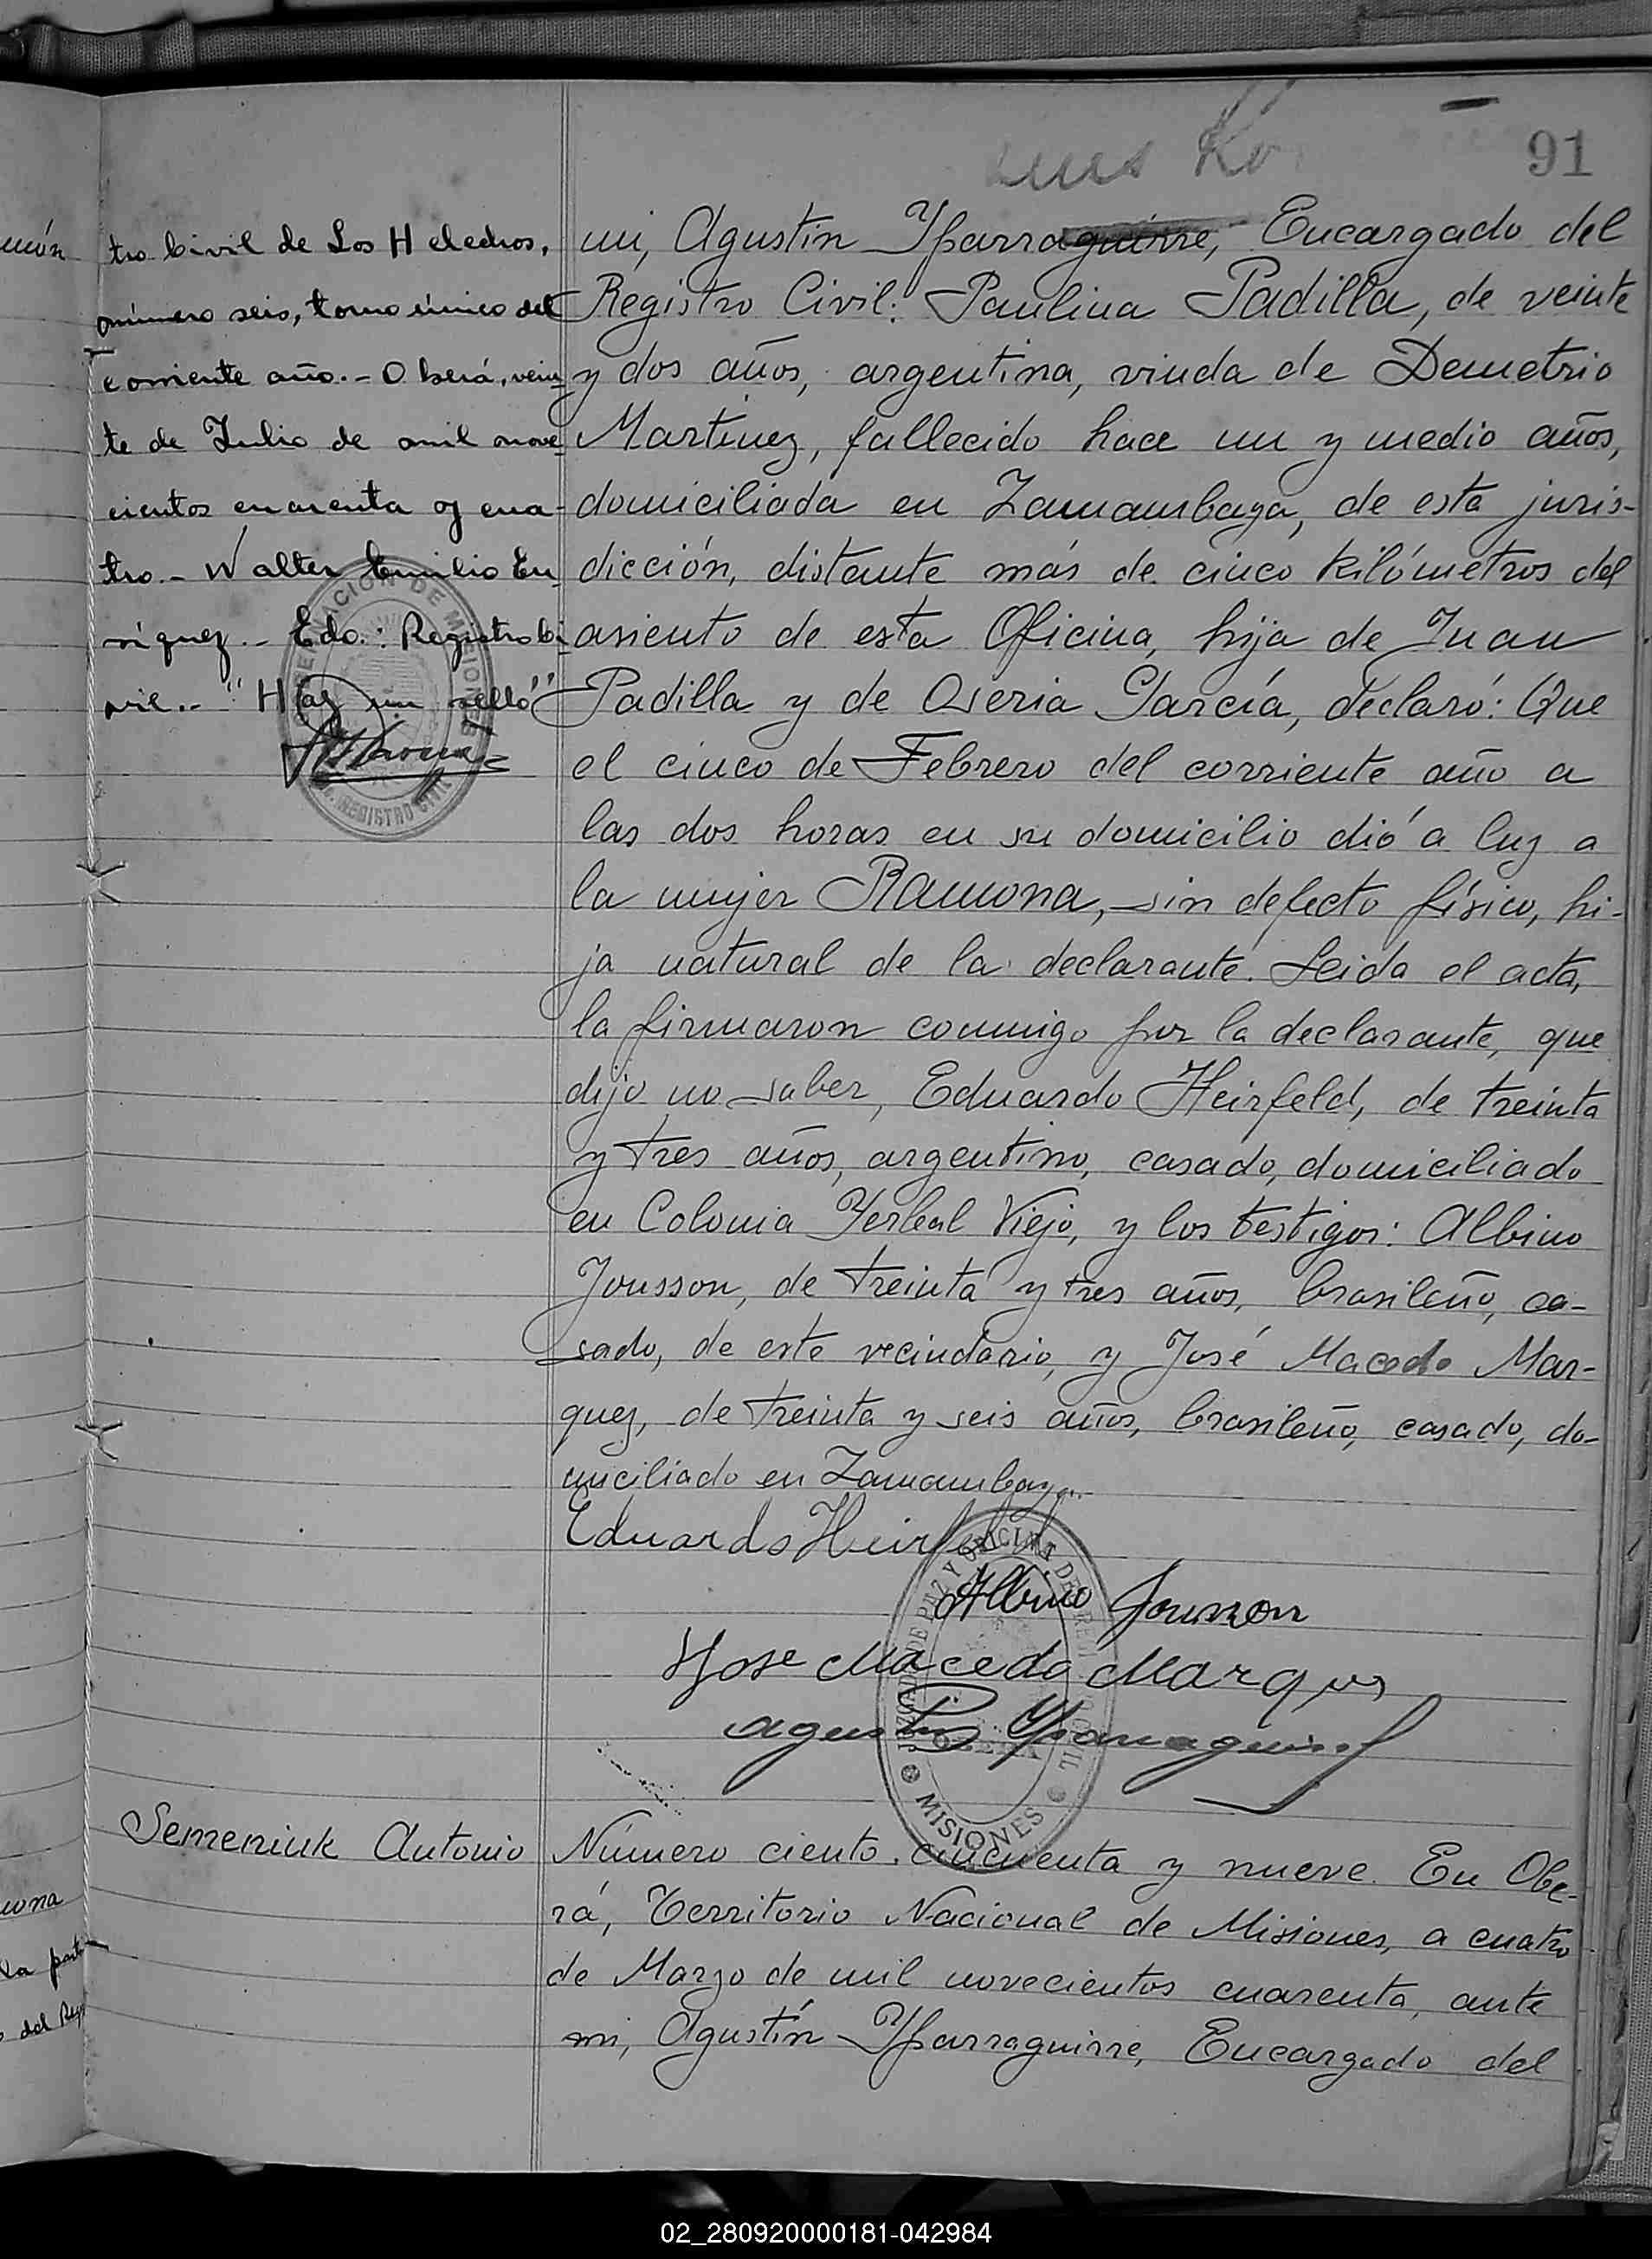 91
Luis Ko
mi, Agustín Yparraguirre, Encargado del
Registro Civil: Paulina Padilla, de veinte
y dos años, argentina, viuda de Demetrio
Martinez, fallecido hace un y medio años,
domiciliada en Zamambaya, de esta juris-
dicción, distante más de cinco kilómetros del
asiento de esta Oficina, hija de Juan
Padilla y de Oseria García, declaró: Que
el cinco de Febrero del corriente año a
las dos horas en su domicilio dió a luz a
la mujer Ramona, sin defecto físico, hi-
ja natural de la declarante. Leida el acta,
la firmaron conmigo por la declarante, que
dijo no saber, Eduardo Heirfeld, de treinta
y tres años, argentino, casado, domiciliado
en Colonia Yerbal Viejo, y los testigos: Albino
Jousson, de treinta y tres años, brasileño, ca-
sado, de este vecindario, y José Macedo Mar-
quez, de treinta y seis años, brasileño, casado, do-
miciliado en Zamambaya.
Eduardo Heirfeld
Albino Jousson
Jose Macedo Marques
Agustin Yparraguirre
JUZGADO DE PAZ Y OFICINA DEL REGISTRO CIVIL
MISIONES
tro Civil de Los Helechos,
número seis, tomo único del
corriente año.- Oberá, vein
te de Julio de mil nove
cientos cuarenta y cua-
tro.- Walter Emilio En
riquez.- Edo.: Registro Ci
vil.- "Hay un sello"
GOBERNACION DE MISIONES
REGISTRO CIVIL
Semeniuk Antonio
Número ciento cincuenta y nueve. En Obe-
rá, Territorio Nacional de Misiones, a cuatro
de Marzo de mil novecientos cuarenta, ante
mi, Agustín Yparraguirre, Encargado del
la parti
del Reg
02_280920000181-042984